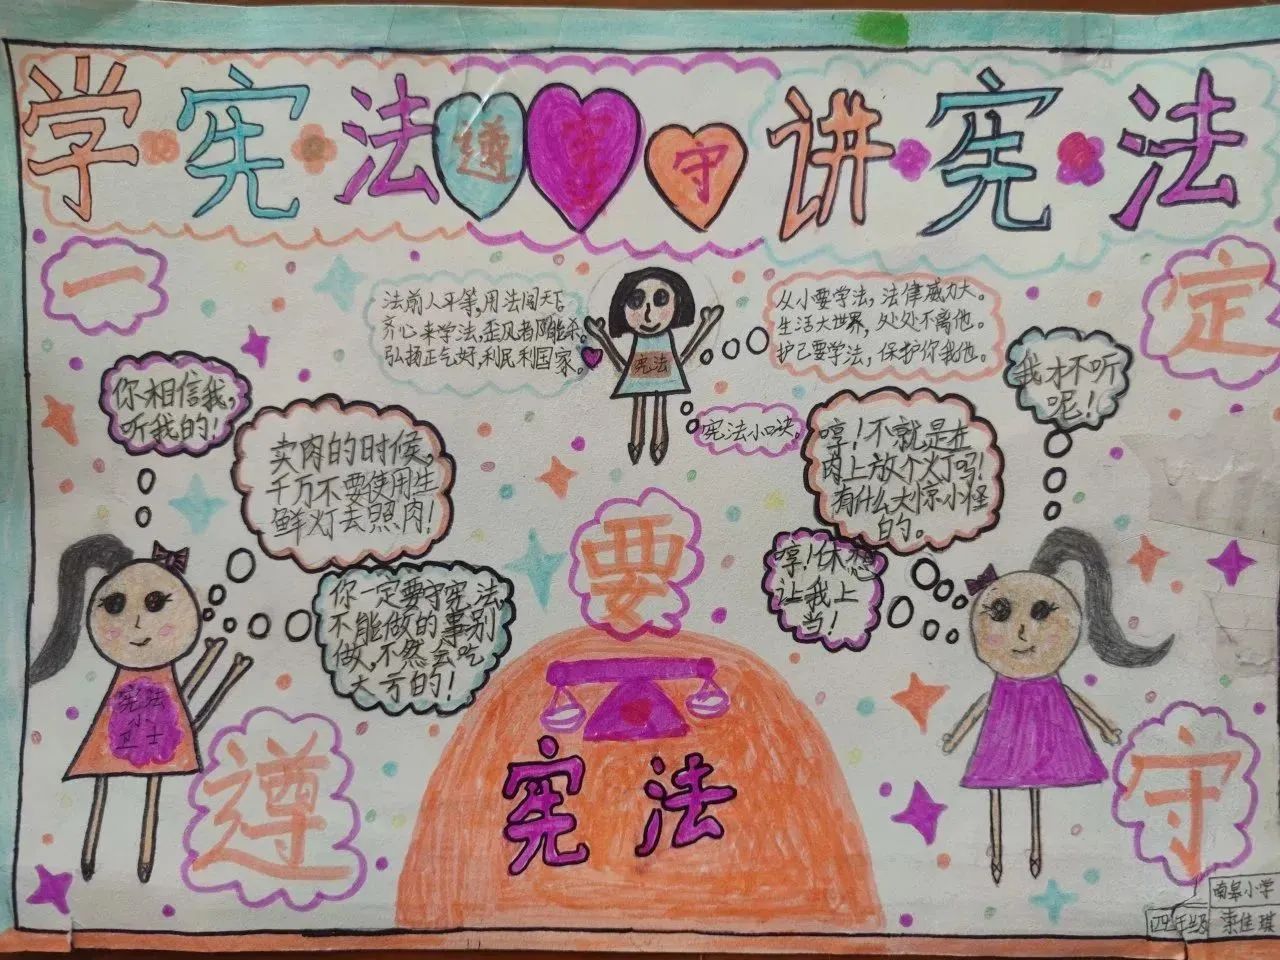 学宪法
遵宪守
讲宪法
一
定
要
遵
守
法前人平等,用法问天下
齐心来学法,歪风者都能杀。
弘扬正气好,利民利国家。
宪法
从小要学法,法律威力大。
生活大世界,处处不离他。
护己要学法,保护你我他。
宪法小口诀,
你相信我,
听我的!
卖肉的时候,
千万不要使用生
鲜灯去照肉!
你一定要守宪法
不能做的事别
做,不然会吃
大亏的!
宪法
小
卫士
我才不听
呢!
哼!不就是在
肉上放个灯吗!
有什么大惊小怪
的。
哼!休想
让我上
当!
宪法
南皋小学
四年级
佳琪